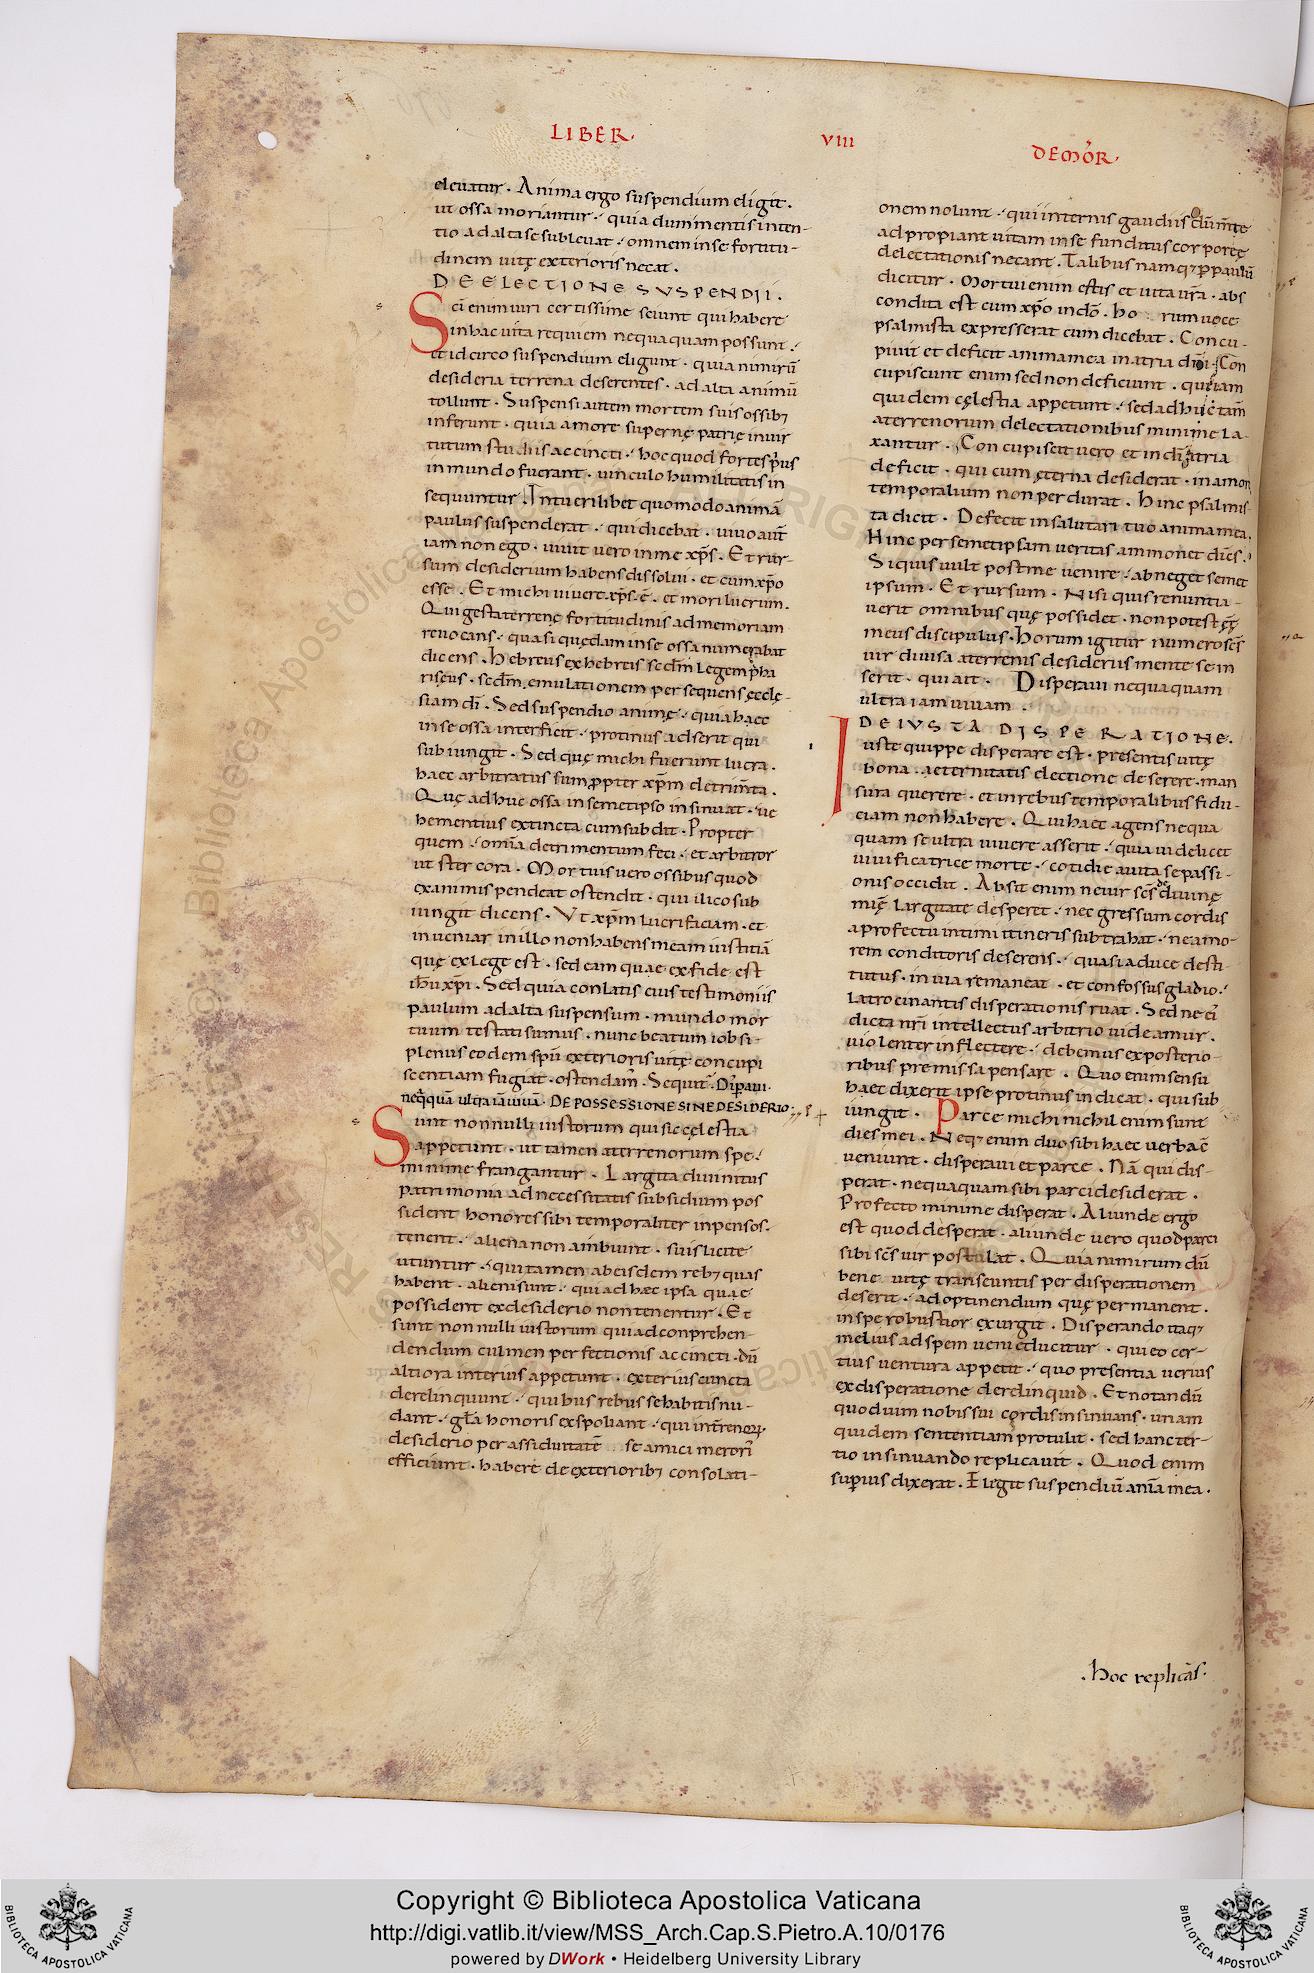 LIBER·
VIII
DEMÕR·
eleuatur· Anima ergo suspendium eligit·
ut ossa moriantur·' quia dum mentis inten-
tio ad alta se subleuat·' omnem in se fortitu-
dinem uitę exterioris necat·
DE ELECTIONE SUSPENDII·
Sc̄i enim uiri certissime sciunt qui habere
in hac uita requiem nequaquam possunt·'
et idcirco suspendium eligunt· quia nimirū
desideria terrena deserentes· ad alta animū
tollunt· Suspensi autem mortem suis ossib;
inferunt· quia amore supernę patrię in uir
tutum studiis accincti·' hoc quod fortes p̄us
in mundo fuerant· uinculo humilitatis in
sequuntur· Intueri libet quomodo animā
paulus suspenderat·' qui dicebat· uiuo aut̄
iam non ego· uiuit uero in me xp̄s· Et rur-
sum desiderium habens dissolui· et cum xp̄o
esse· Et michi uiuere xp̄s·ē· et mori lucrum·
Qui gesta terrenę fortitudinis ad memoriam
reuocans·' quasi quędam in se ossa numerabat
dicens· hebreus ex hebreis sc̄dm legem pha
riseus· sc̄dm emulationem persequens ęcclę-
siam dī· Sed suspendio animę·' quia haec
in se ossa interficit·' protinus adserit qui
subiungit· Sed quę michi fuerunt lucra·
haec arbitratus sum propter xp̄m detrim̄ta·
Quę adhuc ossa in semetipso insinuat·' ue
hementius extincta cum subdit· Propter
quem·' omīa detrimentum feci·' et arbitror
ut stercora· Mortuis uero ossibus quod
exanimis pendeat ostendit· qui ilico sub
iungit dicens· Ut xp̄m lucrifaciam· et
inueniar in illo non habens meam iustitiā
quę ex lege est· sed eam quae ex fide est
ih̄u xp̄i· Sed quia conlatis eius testimoniis
paulum ad alta suspensum· mundo mor
tuum testati sumus· nunc beatum iob si-
plenus eodem sp̄u exterioris uitę concupi
scentiam fugiat· ostendam̄· Sequit̄· Disp̄aui·
neq̄qua ultra iā uiuā· DE POSSESSIONE SINE DESIDERIO·
Sunt nonnulli iustorum qui sic cęlestia
appetunt· ut tamen a terrenorum spe·'
minime frangantur· Largita diuinitus
patrimonia ad necessitatis subsidium pos
sident honores sibi temporaliter inpensos·
tenent·' aliena non ambiunt· suis licite
utuntur·' qui tamen ab eisdem reb; quas
habent· alieni sunt·' qui ad haec ipsa quae
possident ex desiderio non tenentur· Et
sunt nonnulli iustorum qui ad conprehen-
dendum culmen perfectionis accincti· dū
altiora interius appetunt· exterius cuncta
derelinquunt·' qui bus rebus se habitis nu-
dant·' gl̄a honoris exspoliant·' qui int̄renorꝝ
desiderio per assiduitatē se amici meroris
efficiunt· habere de exteriorib; consolati-
onem nolunt·' qui internis gaudiis dūm̄te
adpropiant uitam in se funditus corporeę
delectationis necant· Talibus namq; p paulū
dicitur· Mortui enim estis et uita ur̄a· abs
condita est cum xp̄o in dō· Ho rum uoce
psalmista expresserat cum dicebat· Concu-
piuit et deficit anima mea in atria dn̄i· Con
cupiscunt enim sed non deficiunt· qui iam
quidem cęlestia appetunt·' sed adhuc tam̄
a terrenorum delectationibus minime la-
xantur· Concupiscit uero et in dī atria
deficit· qui cum ęterna desiderat· in amore
temporalium non perdurat· Hinc psalmis
ta dicit· Defecit in salutari tuo anima mea·
Hinc per semetipsam ueritas ammonet dicēs·'
Siquis uult post me uenire·' abneget semet
ipsum· Et rursum· Nisi quis renuntia-
uerit omnibus quę possidet· non potest ēē
meus discipulus· Horum igitur numero sc̄s
uir diuisa a terrenis desideriis mente se in
serit· qui ait· Disperaui nequaquam
ultra iam uiuam·
DE IUSTA DISPERATIONE·
Iuste quippe disperare est· presentis uitę
bona· aeternitatis electione deserere· man
sura querere· et in rebus temporalibus fidu-
ciam non habere· Qui haec agens nequa
quam se ultra uiuere asserit·' quia uidelicet
uiuificatrice morte·' cotidie a uita se passi-
onis occidit· Absit enim ne uir sc̄s de diuinę
mię largitate desperet·' nec gressum cordis
a profectu intimi itineris subtrahat·' ne amo-
rem conditoris deserens·' quasi a duce desti
tutus· in uia remaneat· et confossus gladio·'
latrocinantis disperationis ruat· Sed ne ei
dicta nr̄i intellectus arbitrio uideamur·
uiolenter inflectere·' debemus ex posterio-
ribus premissa pensare· Quo enim sensu
haec dixerit ipse protinus indicat· qui sub
iungit· Parce michi nichil enim sunt
dies mei· Neq; enim duo sibi haec uerba cō
ueniunt· disperaui et parce· Nā qui dis-
perat· nequaquam sibi parci desiderat·
Profecto minime disperat· Aliunde ergo
est quod desperat· aliunde uero quod parci
sibi sc̄s uir postulat· Quia nimirum dū
bene uitę transeuntis per disperationem
deserit·' ad optinendum quę permanent·
in spe robustior exurgit· Disperando itaq;
melius ad spem uenię ducitur· qui eo cer-
tius uentura appetit·' quo presentia uerius
ex disperatione derelinquid· Et notandū
quod uim nobis sui cordis insinuans· unam
quidem sententiam protulit· sed hanc ter-
tio insinuando replicauit· Quod enim
sup̄ius dixerat· Elegit suspendiū anīa mea·
·hoc replicās·
Copyright © Biblioteca Apostolica Vaticana
http://digi.vatlib.it/view/MSS_Arch.Cap.S.Pietro.A.10/0176
powered by DWork • Heidelberg University Library
BIBLIOTECA APOSTOLICA VATICANA
BIBLIOTECA APOSTOLICA VATICANA